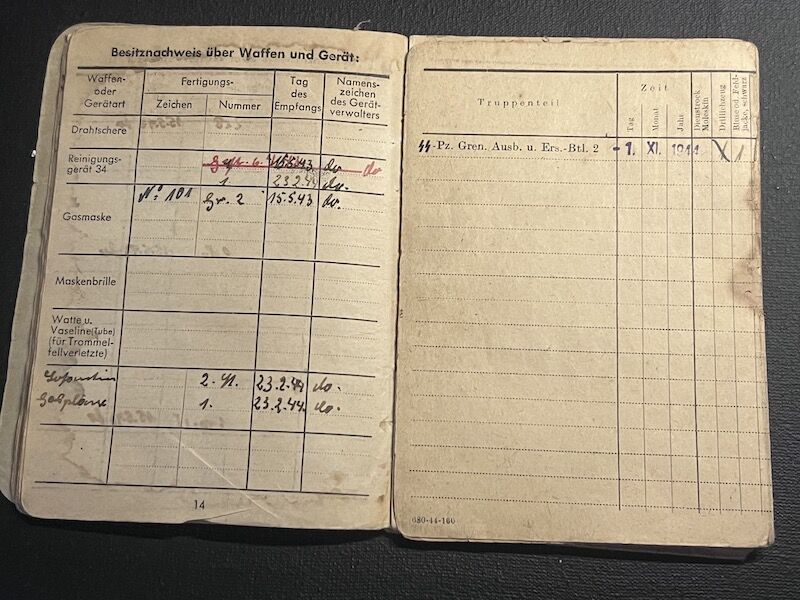 Besitznachweis über Waffen und Gerät:
Waffen- oder Gerätart
Fertigungs-
Zeichen
Nummer
Tag des Empfangs
Namens- zeichen des Gerät- verwalters
Drahtschere
Reinigungs- gerät 34 15.5.43
1. 23.2.44
Gasmaske No 101 Gr. 2 15.5.43
Maskenbrille
Watte u. Vaseline (Tube) (für Trommel- fellverletzte)
2. 23.2.44
1. 23.2.44.
14
Truppenteil
Zeit
Tag
Monat
Jahr
Dienstrock Moleskin
Drillichzeug
Bluse od. Feld- jacke, schwarz
SS-Pz. Gren. Ausb. u. Ers.-Btl. 2 -1. XI. 1944 1
680-44-160